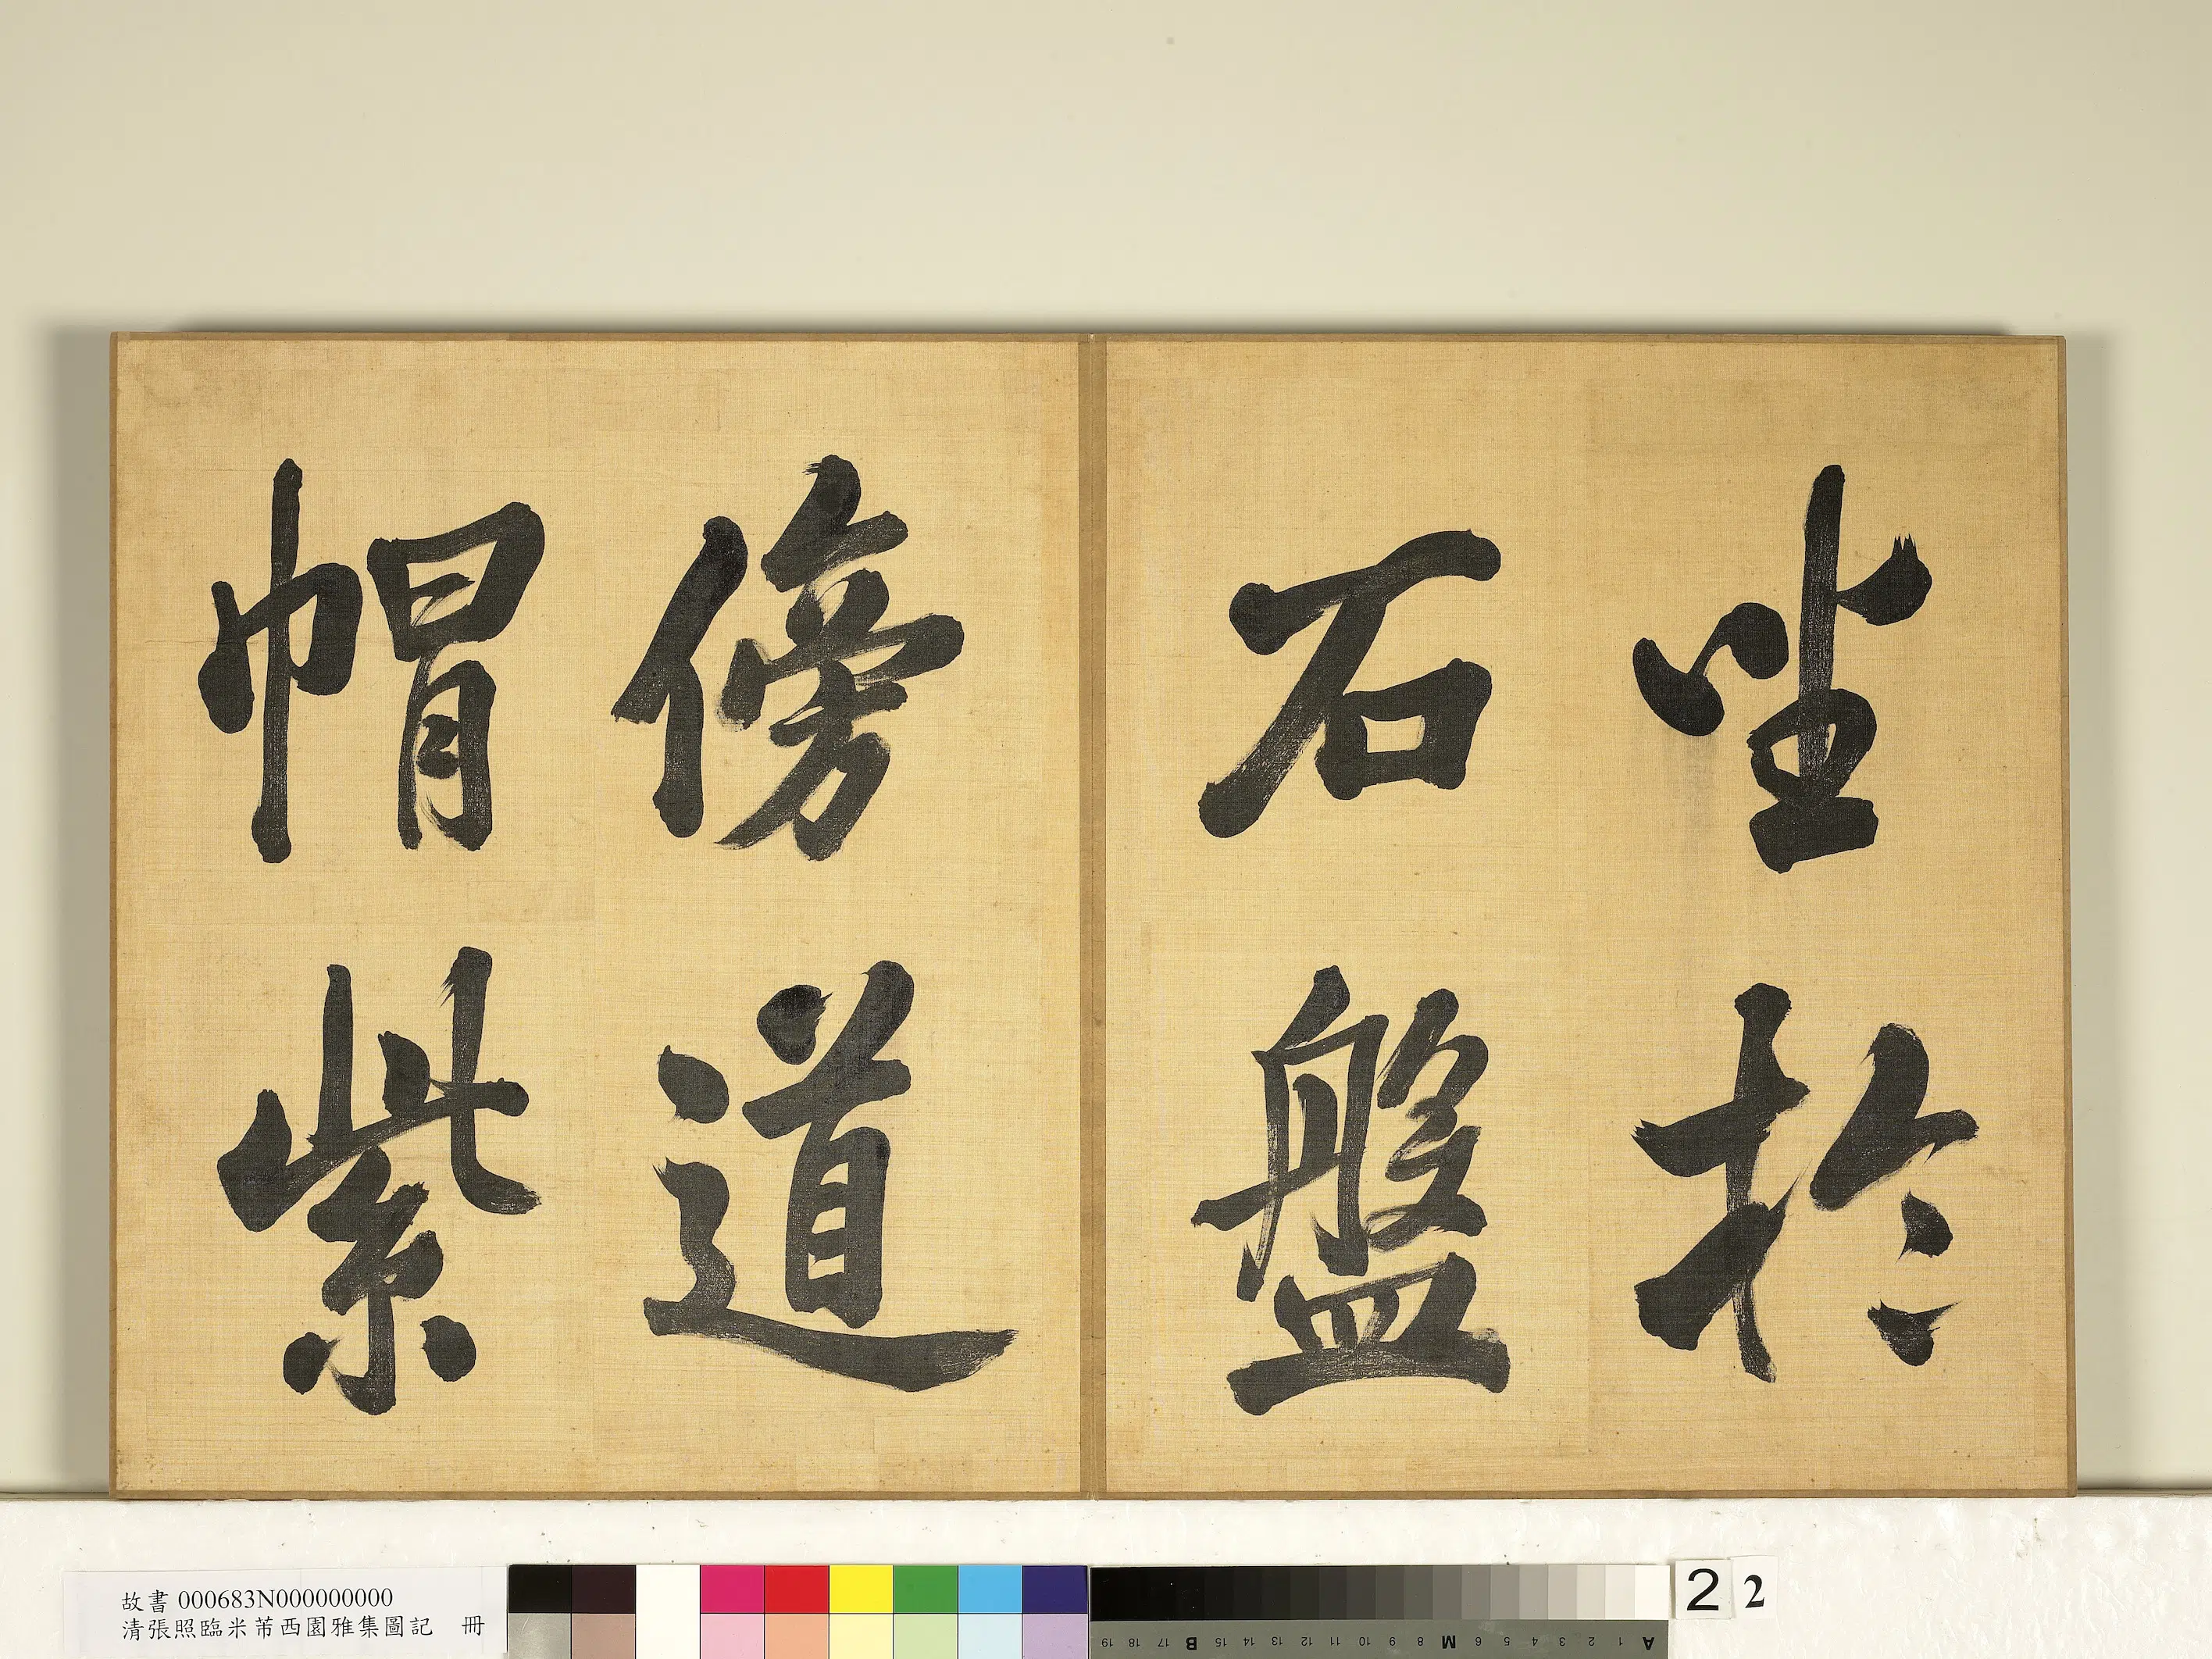 坐於
石盤
傍道
帽紫
故書 000683N000000000
清張照臨米芾西園雅集圖記 冊
19 18 17 B 15 14 13 12 11 10 9 8 M 6 5 4 3 2 1 A
2 2